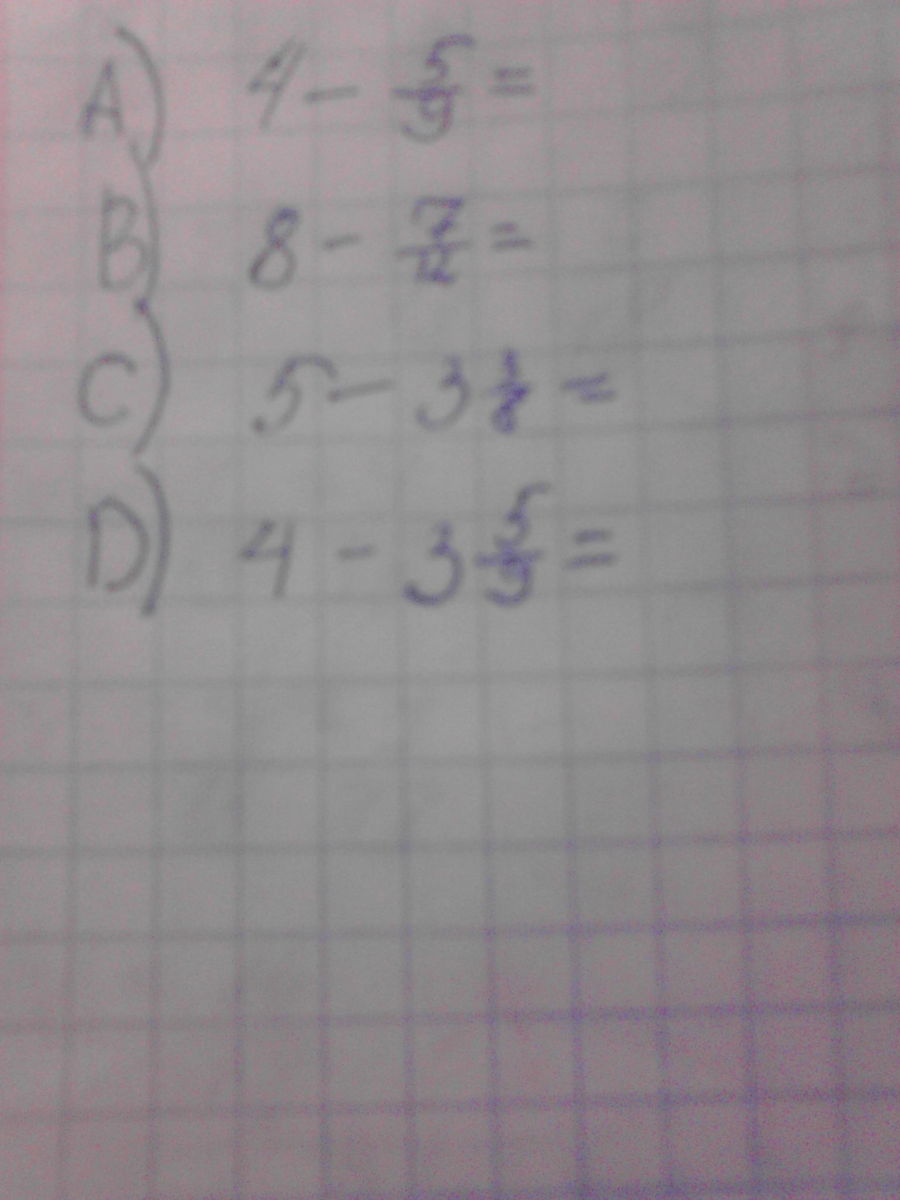 A) 4 - 5/9 =
B) 8 - 7/12 =
C) 5 - 3 =
D) 4 - 3 5/9 =